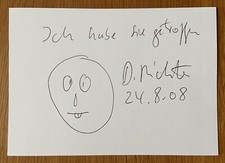 Ich habe sie getroffen
D. Richter
24.8.08